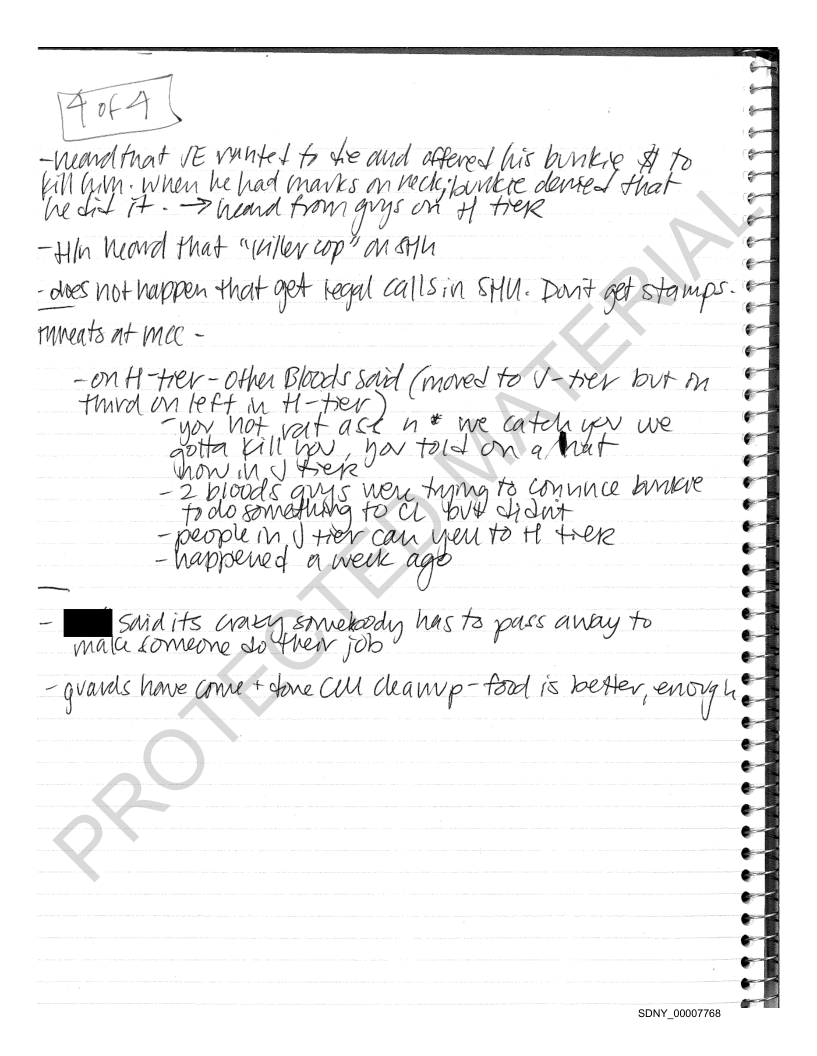 4 of 4
- heard that JE wanted to die and offered his bunkie $ to
kill him. when he had marks on neck, bunkie denied that
he did it. → heard from guys on H tier
- H/n heard that "killer cop" on SHU
- does not happen that get legal calls in SHU. Don't get stamps.
threats at MCC -
- on H-tier - other Bloods said (moved to J-tier but in
third on left in H-tier)
- you hot rat ass n* we catch you we
gotta kill you, you told on a
now in J tier
- 2 bloods guys were trying to convince bunkie
to do something to CL but didn't
- people in J tier can yell to H tier
- happened a week ago
- said its crazy somebody has to pass away to
make someone do their job
- guards have come + done cell cleanup - food is better, enough
PROTECTED MATERIAL
SDNY_00007768